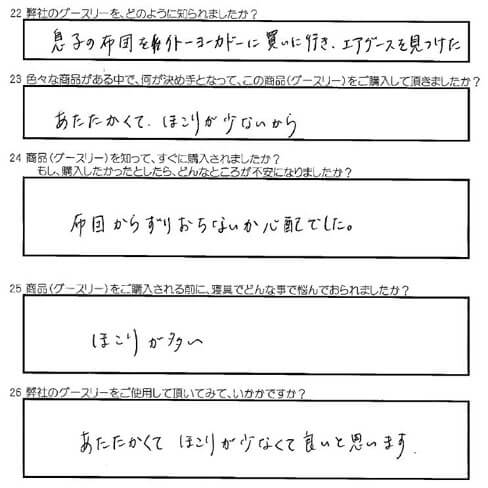 22 弊社のグースリーを、どのように知られましたか?
息子の布団をイトーヨーカドーに買いに行き、エアグースを見つけた
23 色々な商品がある中で、何が決め手となって、この商品(グースリー)をご購入して頂きましたか?
あたたかくて、ほこりが少ないから
24 商品(グースリー)を知って、すぐに購入されましたか?
もし、購入しなかったとしたら、どんなところが不安になりましたか?
布団からずりおちないか心配でした。
25 商品(グースリー)をご購入される前に、寝具でどんな事で悩んでおられましたか?
ほこりが多い
26 弊社のグースリーをご使用して頂いてみて、いかがですか?
あたたかくて ほこりが少なくて良いと思います.